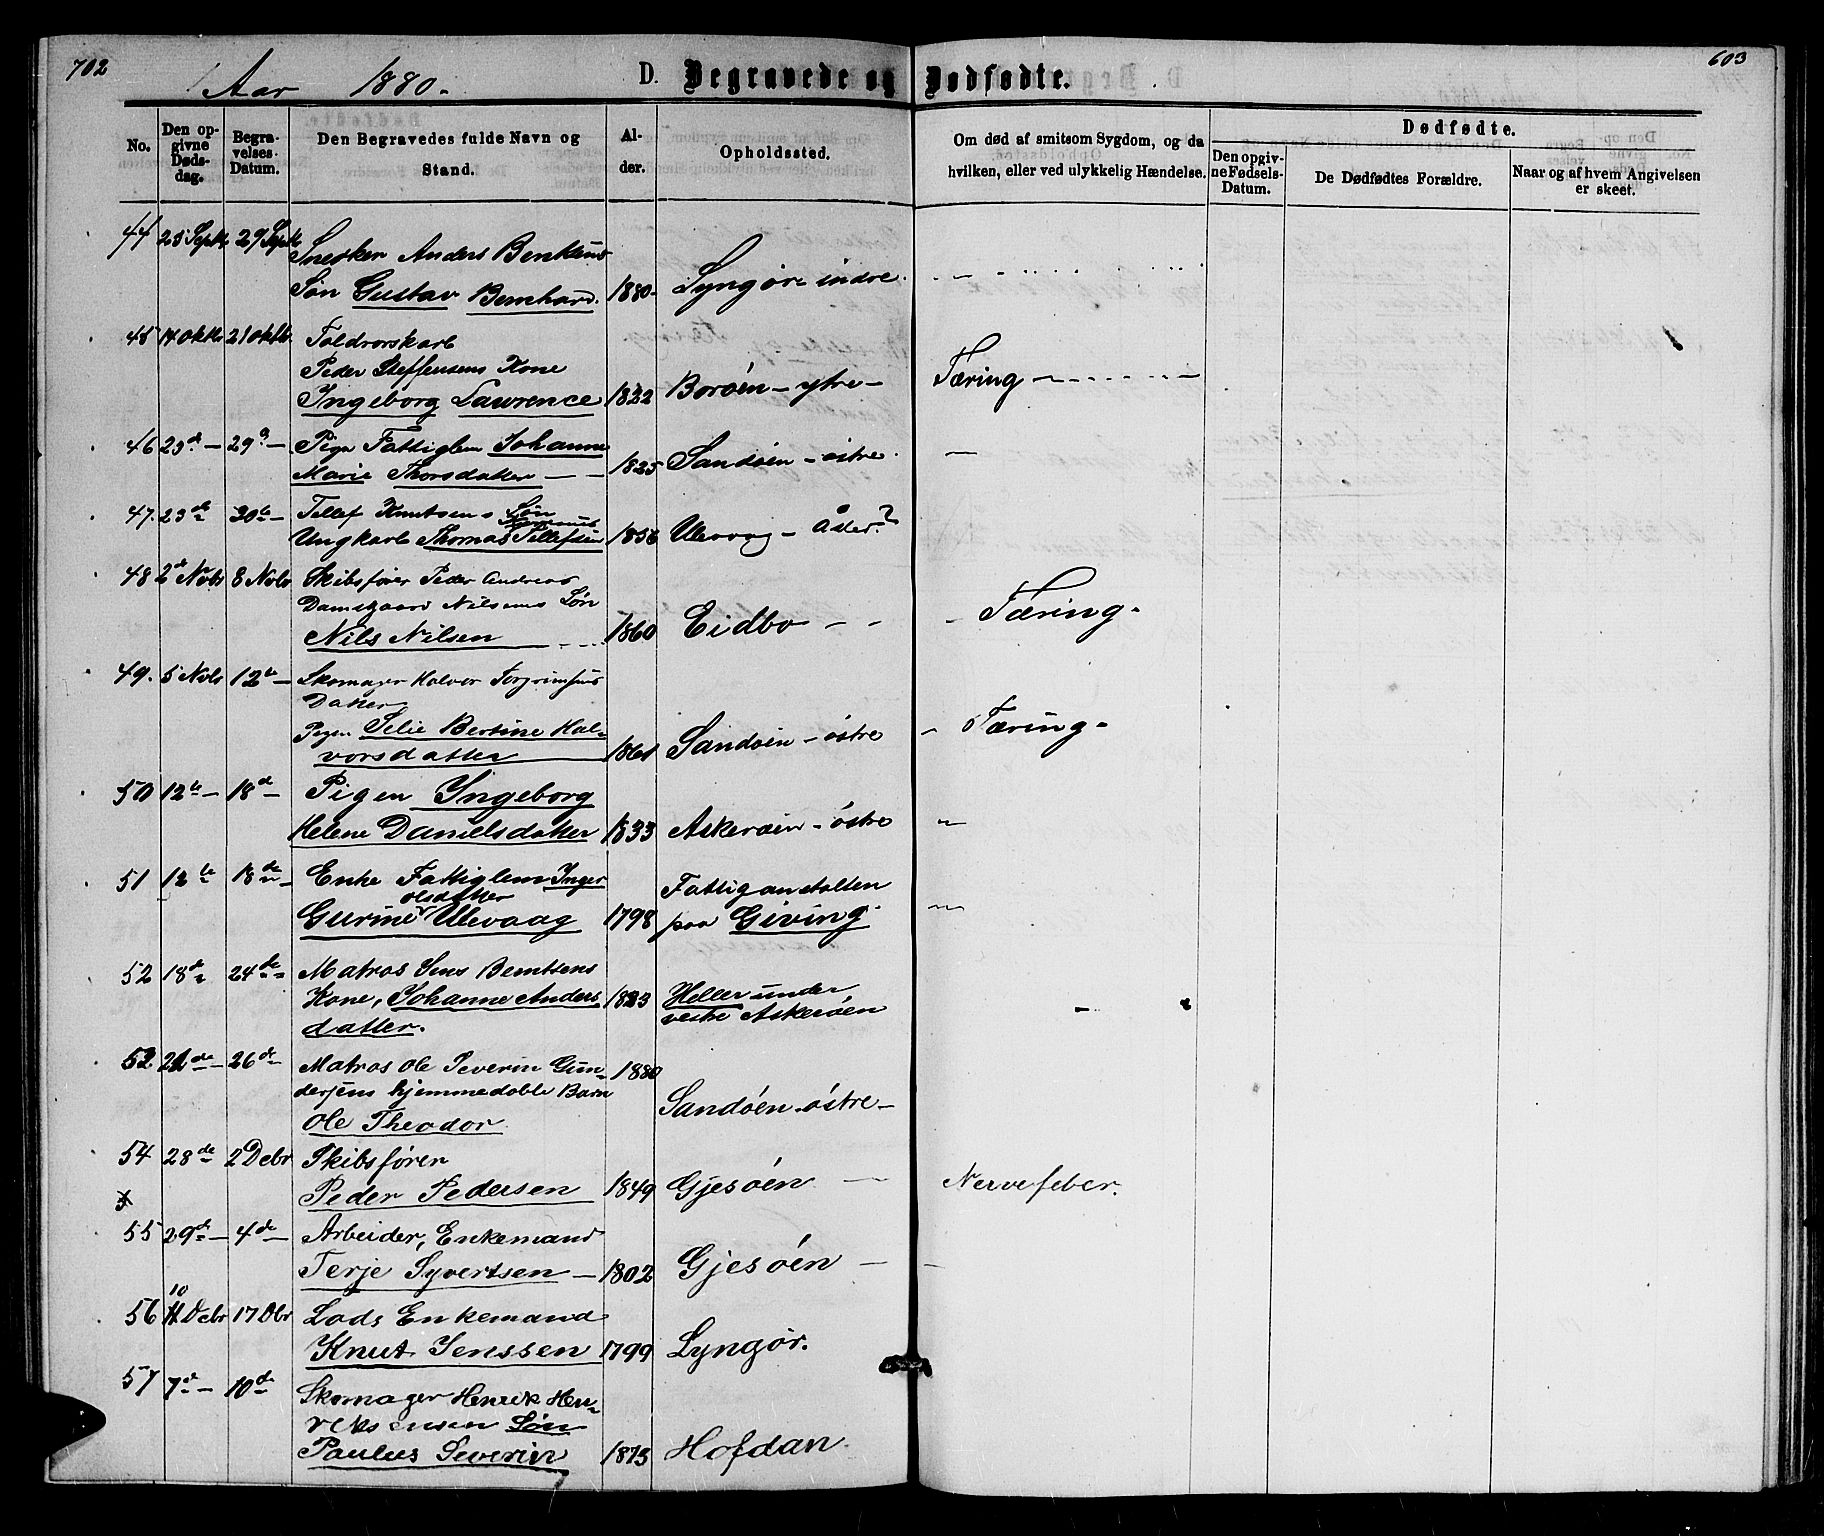 702
603
Aar 1880.
D. Begravede og Dødfødte.
No.
Den op-
givne
Døds-
dag.
Begra-
velses-
Datum.
Den Begravedes fulde Navn og
Stand.
Al-
der.
Opholdssted.
Om død af smitsom Sygdom, og da
hvilken, eller ved ulykkelig Hændelse.
Dødfødte.
Den opgiv-
ne Fødsels-
Datum.
De Dødfødtes Forældre.
Naar og af hvem Angivelsen
er skeet.
44 25 Septb 29 Septb
Snedker Anders
Søn Gustav Bernhard. 1880. Lyngør indre.
45 14 oktb 21 oktb. Toldrorskarl
Peder Steffensens Kone
Ingeborg Lawrence 1822 Borøen - ytre - Tæring
46 23d - 29d - Pige Fattiglem Johanne
Marie Thorsdatter 1825 Sandøen - østre.
47. 23de 30te - Tellef Knutsens Søn
Ungkarl Thomas Tellefsen 1856 Ulevog - Ader?
48 2de Novb 8 Novb Skibsfører Peder Andreas
Damsgaard Nilsens Søn
Nils Nilsen 1860 Eidbo - - Tæring -
49. 5 Novb 12te - Skomager Halvor Torgrimsens
Datter
Pigen Selie Bertine Hal-
vorsdatter 1861 Sandøen - østre - Tæring -
50 12te - 18de - Pigen Ingeborg
Helene Danielsdatter 1833 Askerøen - østre
51 12te 18de - Enke Fattiglem Inger
olsdatter
Gurine Ulevaag 1798 Fattiganstalten
paa Giving.
52 18de 24de - Matros Jens Berntsens
Kone, Johanne Anders
datter. 1823 Heller under
vestre Askerøen
53 21de - 26de Matros Ole Severin Gun-
dersens hjemmedøbte Barn
Ole Theodor 1880
Sandøen østre -
54 28de 2 Debr Skibsfører
Peder Pedersen 1849 Gjesøen - Nervefeber.
55 29de - 4de - Arbeider, Enkemand
Terje Syvertsen - 1802 Gjesøen -
10
56 11 Debr 17 Dbr Lods Enkemand
Knut Jenssen 1799 Lyngør.
57 7de - 10de Skomager Henrik Hen-
riksensen Søn
Paulus Severin 1875 Hofdan.